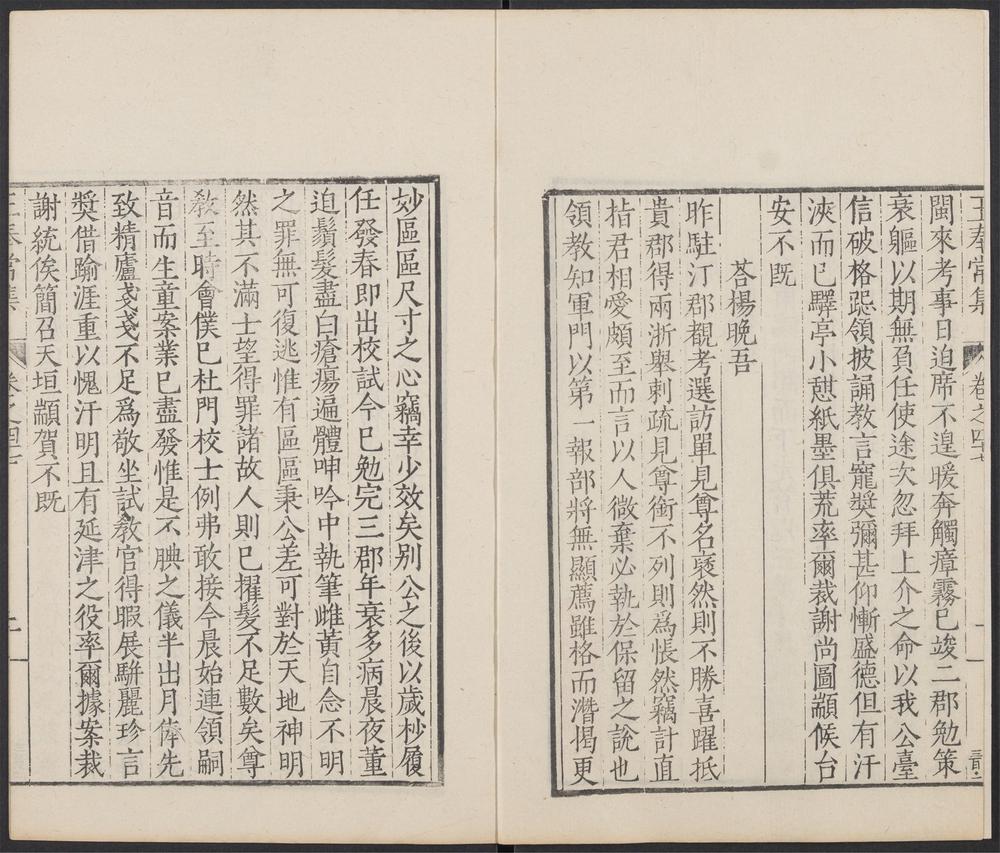 王奉常集 卷之四十七
閩來考事日迫席不遑暖奔觸瘴霧已竣二郡勉策
衰軀以期無負任使途次忽拜上介之命以我公臺
信破格跽領披誦教言寵奬彌甚仰慚盛德但有汗
浹而已驛亭小憇紙墨俱荒率爾裁謝尚圖顓候台
安不既
荅楊晚吾
昨駐汀郡觀考選訪單見尊名裦然則不勝喜躍抵
貴郡得兩浙舉刺疏見尊銜不列則爲悵然竊計直
指君相愛頗至而言以人微棄必執於保留之說也
領教知軍門以第一報部將無顯薦雖格而濳揭更
妙區區尺寸之心竊幸少效矣别公之後以歲杪履
任發春即出校試今巳勉完三郡年衰多病晨夜董
迫鬚髮盡白瘡瘍遍體呻吟中執筆雌黄自念不明
之罪無可復逃惟有區區秉公差可對於天地神明
然其不滿士望得罪諸故人則巳擢髮不足數矣尊
教至時會僕巳杜門校士例弗敢接今晨始連領嗣
音而生童案業巳盡發惟是不腆之儀半出月俸先
致精廬戔戔不足爲敬坐試教官得暇展駢麗珍言
奬借踰涯重以愧汗明且有延津之役率爾據案裁
謝統俟簡召天垣顓賀不既